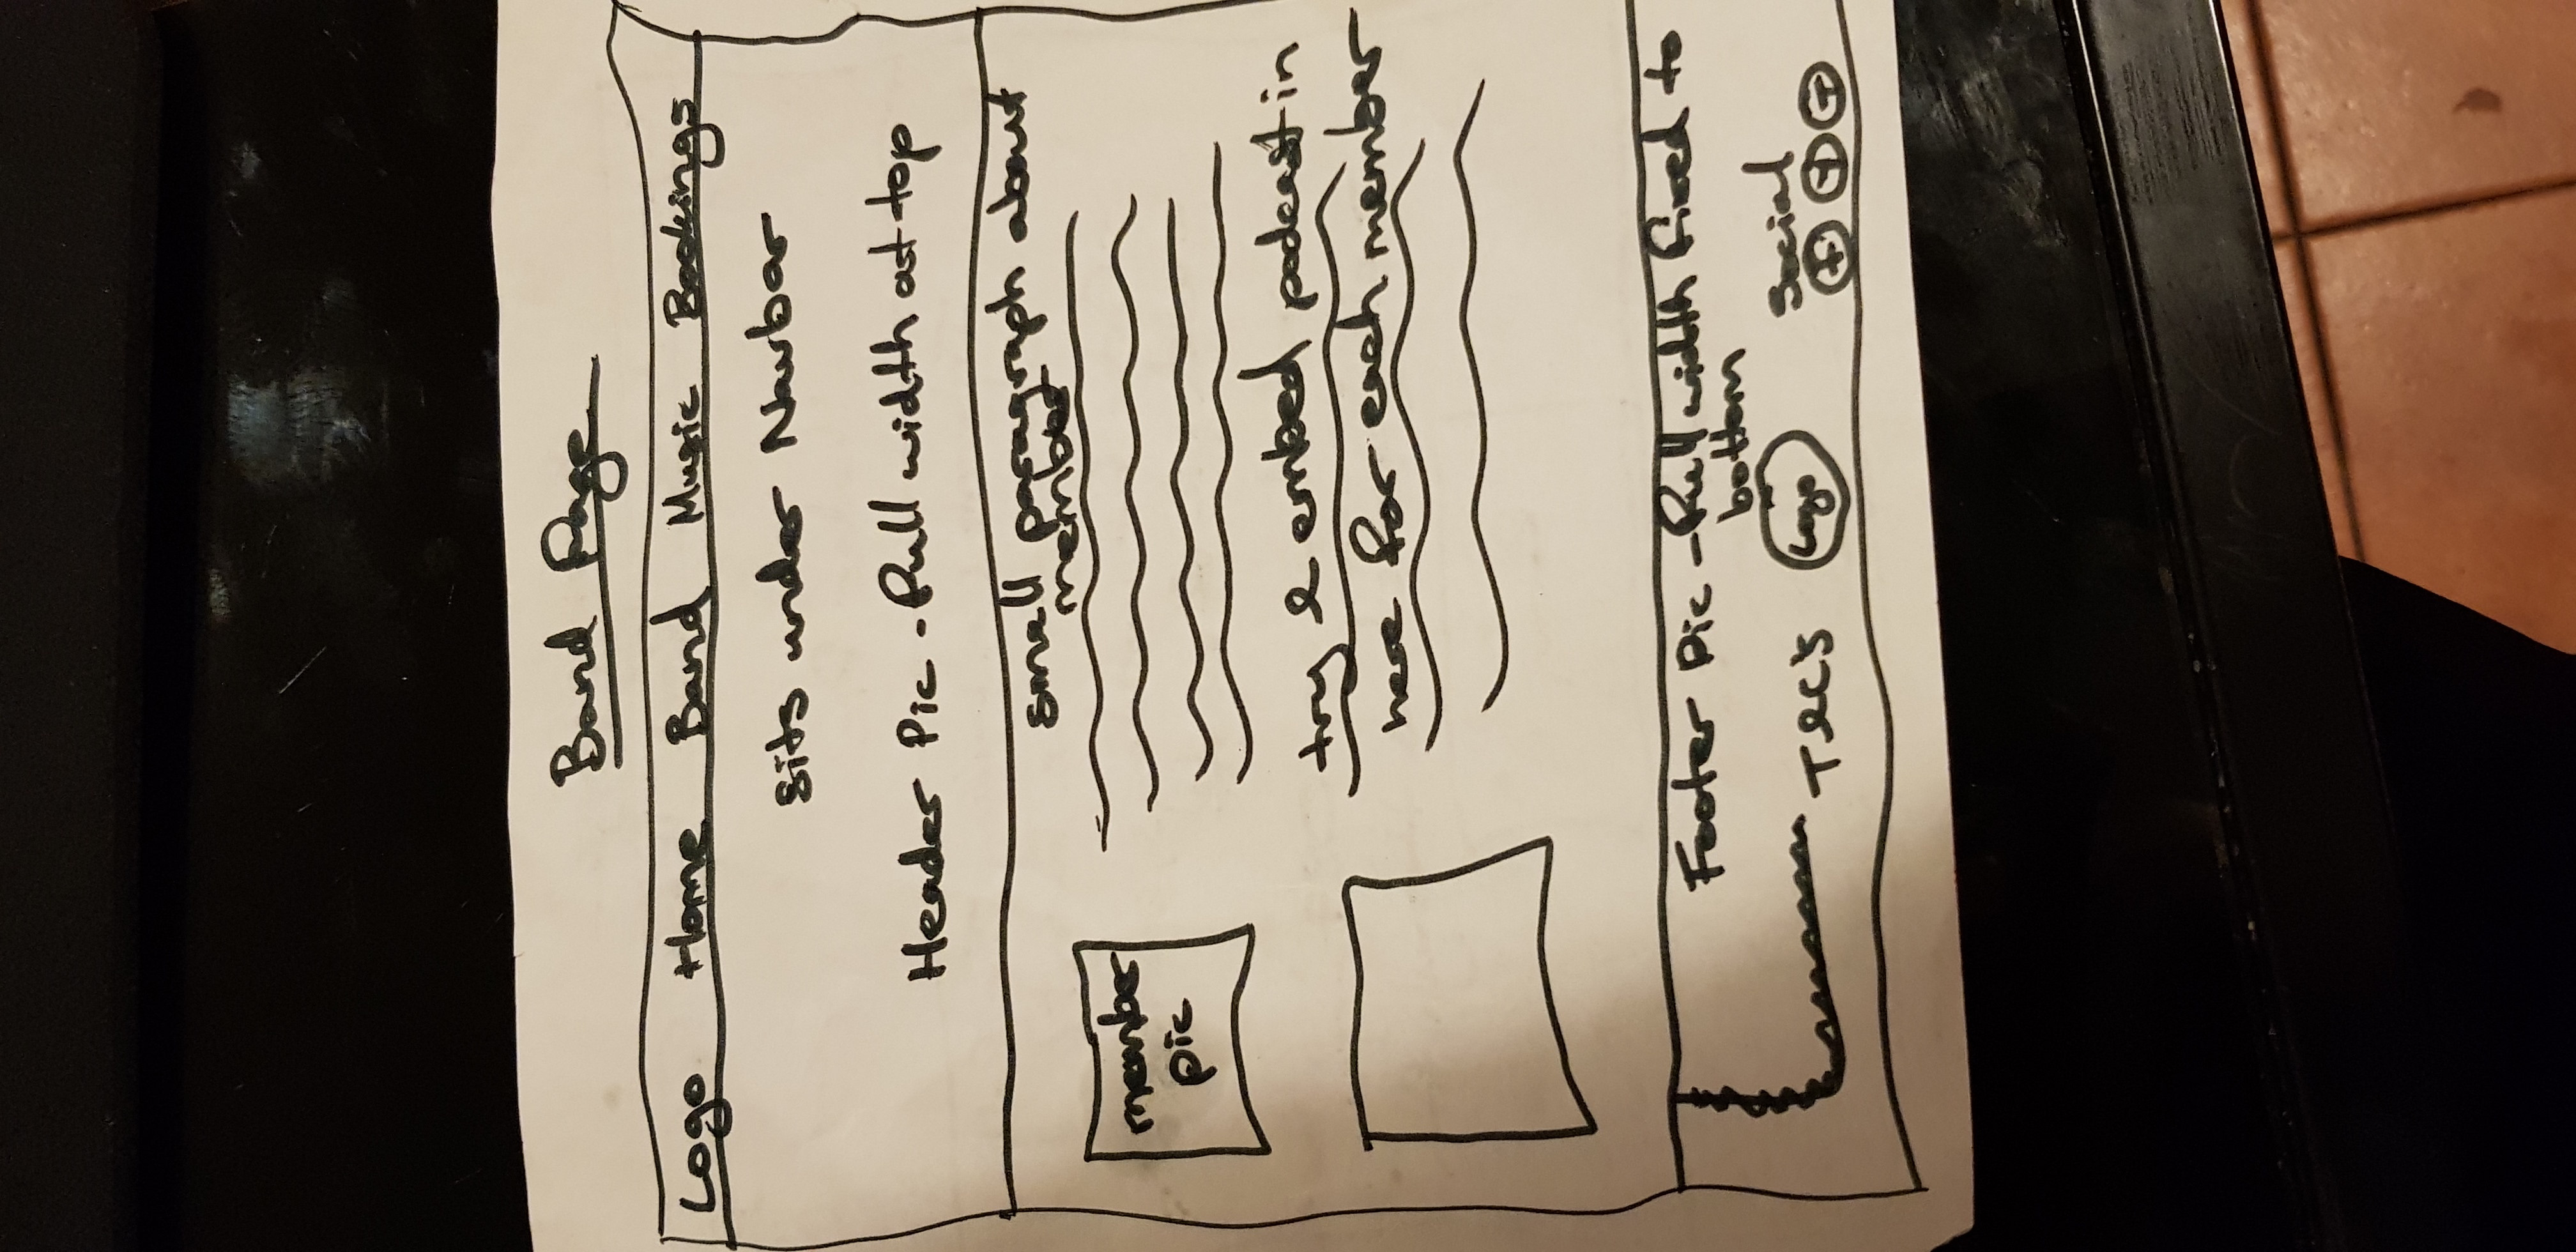 Band Page
Logo Home Band Music Bookings
sits under Navbar
Header Pic - full width at top
small paragraph about
member
member
pic
try & embed podcast in
here for each member
Footer Pic - full width fixed to
bottom
Social
T&C's Logo